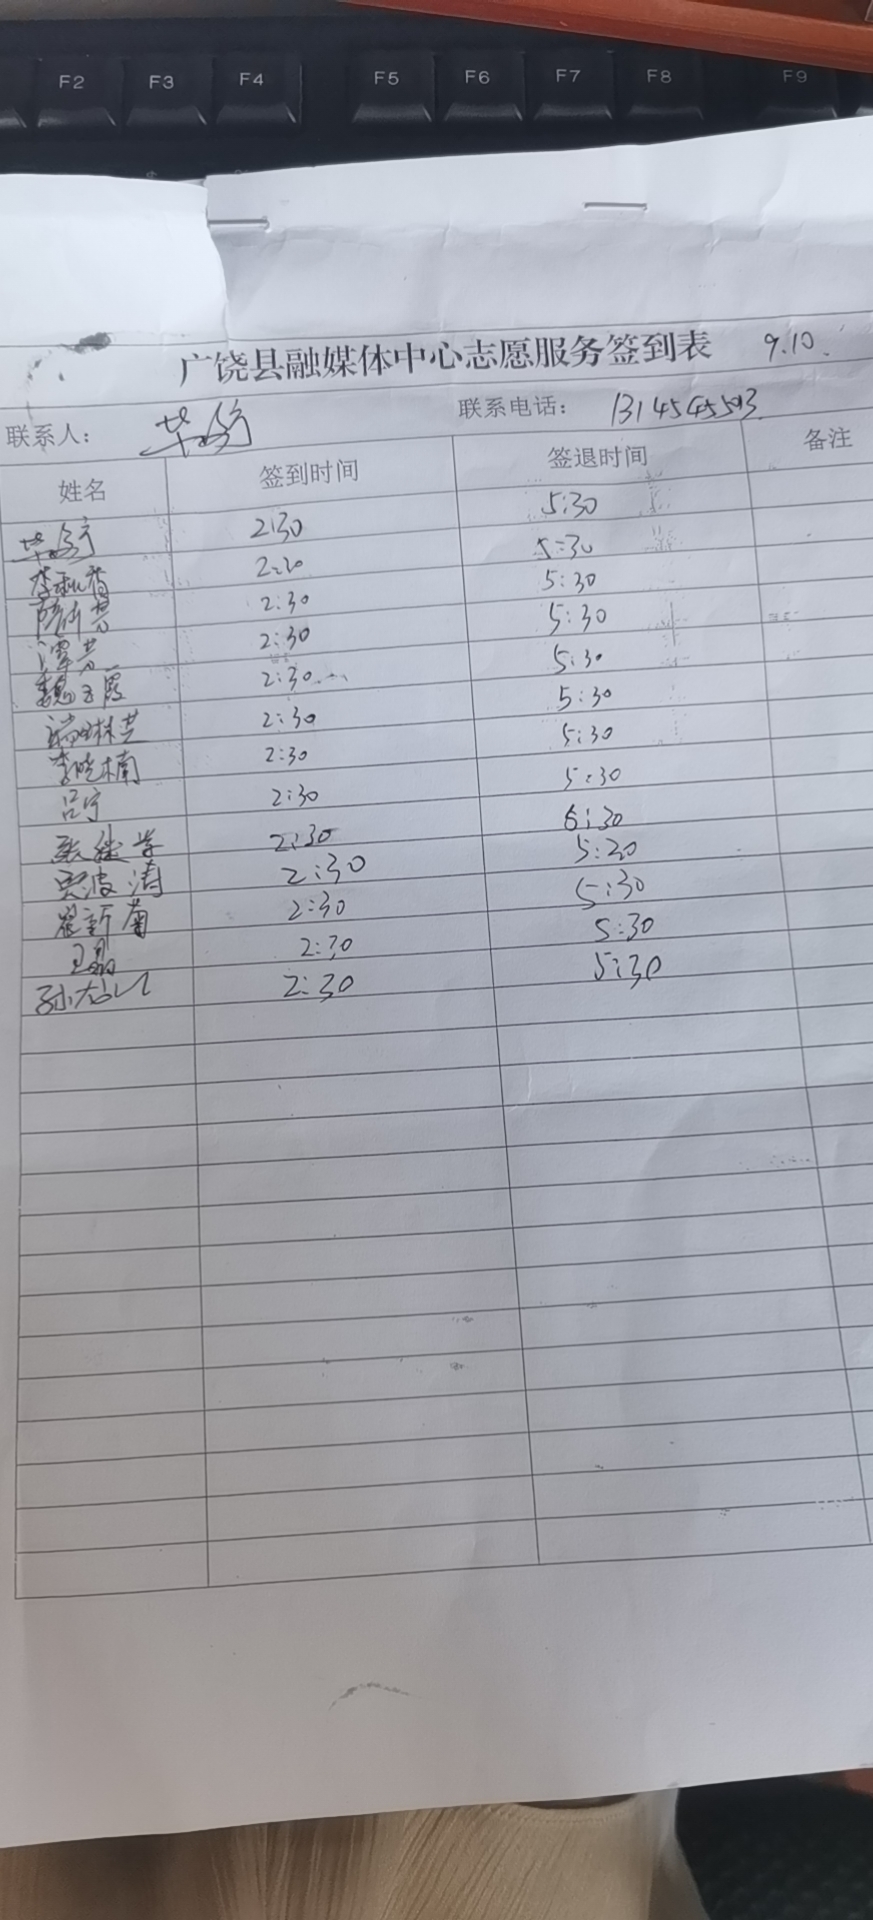 F2 F3 F4 F5 F6 F7 F8 F9
广饶县融媒体中心志愿服务签到表 9.10.
联系人： 联系电话：
姓名 签到时间 签退时间 备注
2:30 5:30
2:30 5:30
2:30 5:30
谭芳 2:30 5:30
魏玉霞 2:30 5:30
2:30 5:30
李晓楠 2:30 5:30
吕宁 2:30 5:30
张继学 2:30 5:30
贾波涛 2:30 5:30
崔新菊 2:30 5:30
王磊 2:30 5:30
2:30 5:30